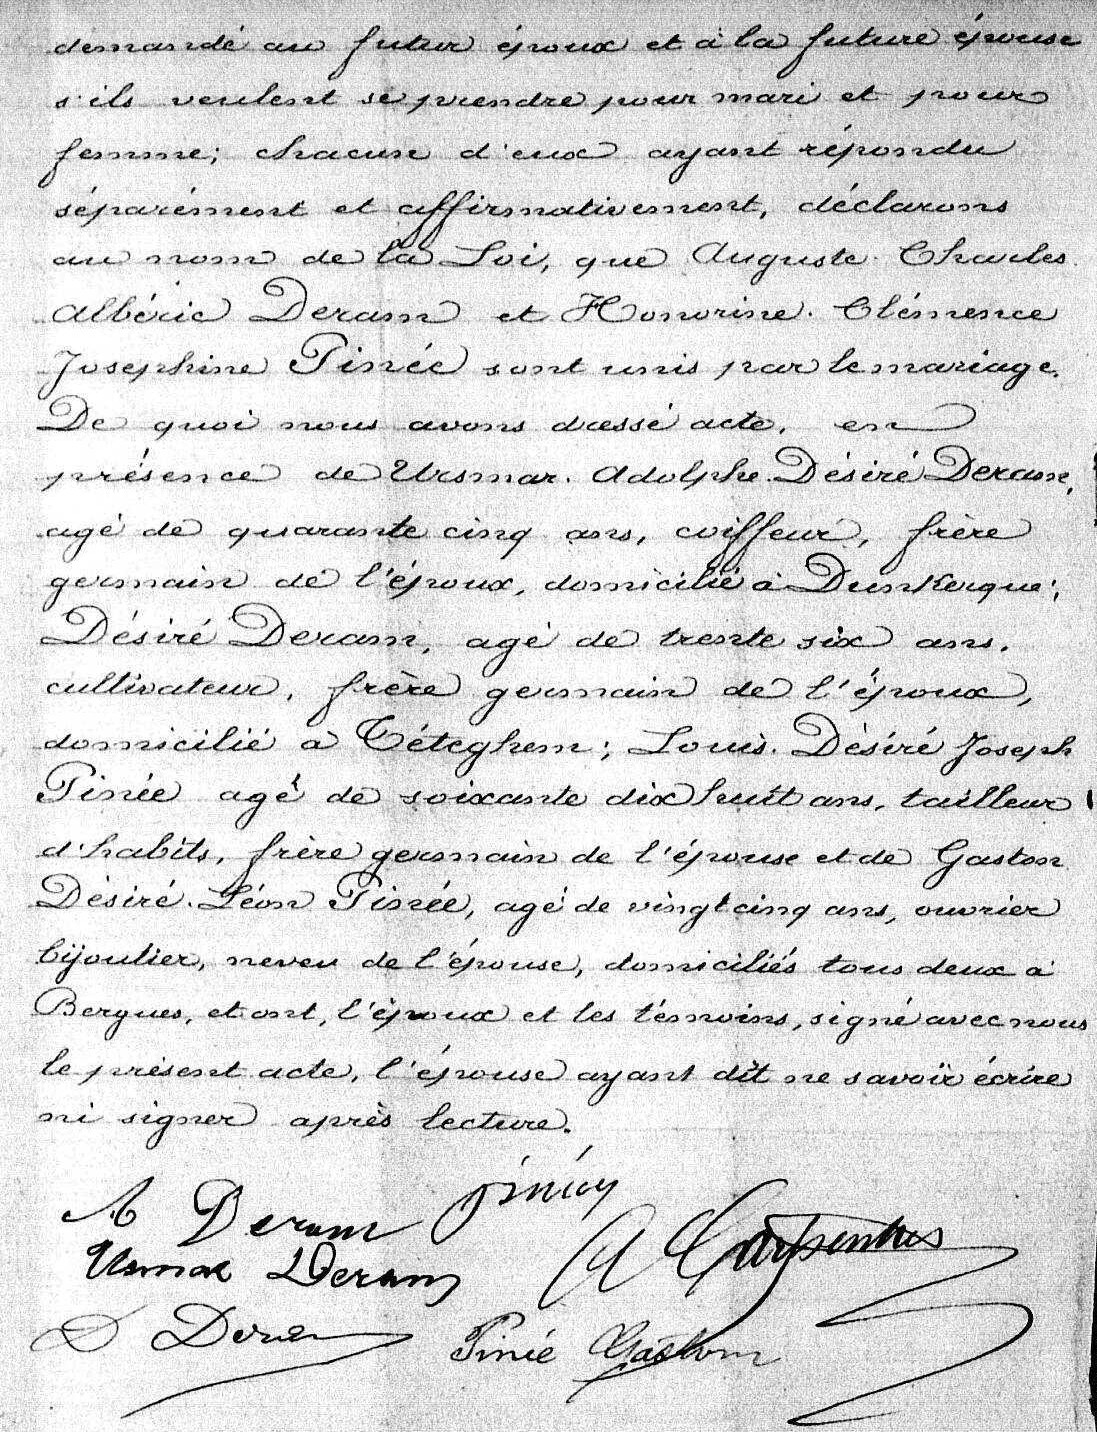 demandé au futur époux et à la future épouse
s'ils veulent se prendre pour mari et pour
femme; chacun d'eux ayant répondu
séparément et affirmativement, déclarons
au nom de la Loi, que Auguste Charles
Albéric Deram et Honorine Clémence
Josephine Pinée sont unis par le mariage.
De quoi nous avons dressé acte, en
présence de Ursmar Adolphe Désiré Deram,
agé de quarante cinq ans, coiffeur, frère
germain de l'époux, domicilié à Dunkerque;
Désiré Deram, agé de trente six ans,
cultivateur, frère germain de l'époux,
domicilié à Téteghem; Louis Désiré Joseph
Pinée agé de soixante dix huit ans, tailleur
d'habits, frère germain de l'épouse et de Gaston
Désiré Léon Pinée, agé de vingt cinq ans, ouvrier
bijoutier, neveu de l'épouse, domiciliés tous deux à
Bergues, et ont, l'époux et les témoins, signé avec nous
le présent acte, l'épouse ayant dit ne savoir écrire
ni signer après lecture.
A Deram
Ursmar Deram
D Deram
Pinée Gaston